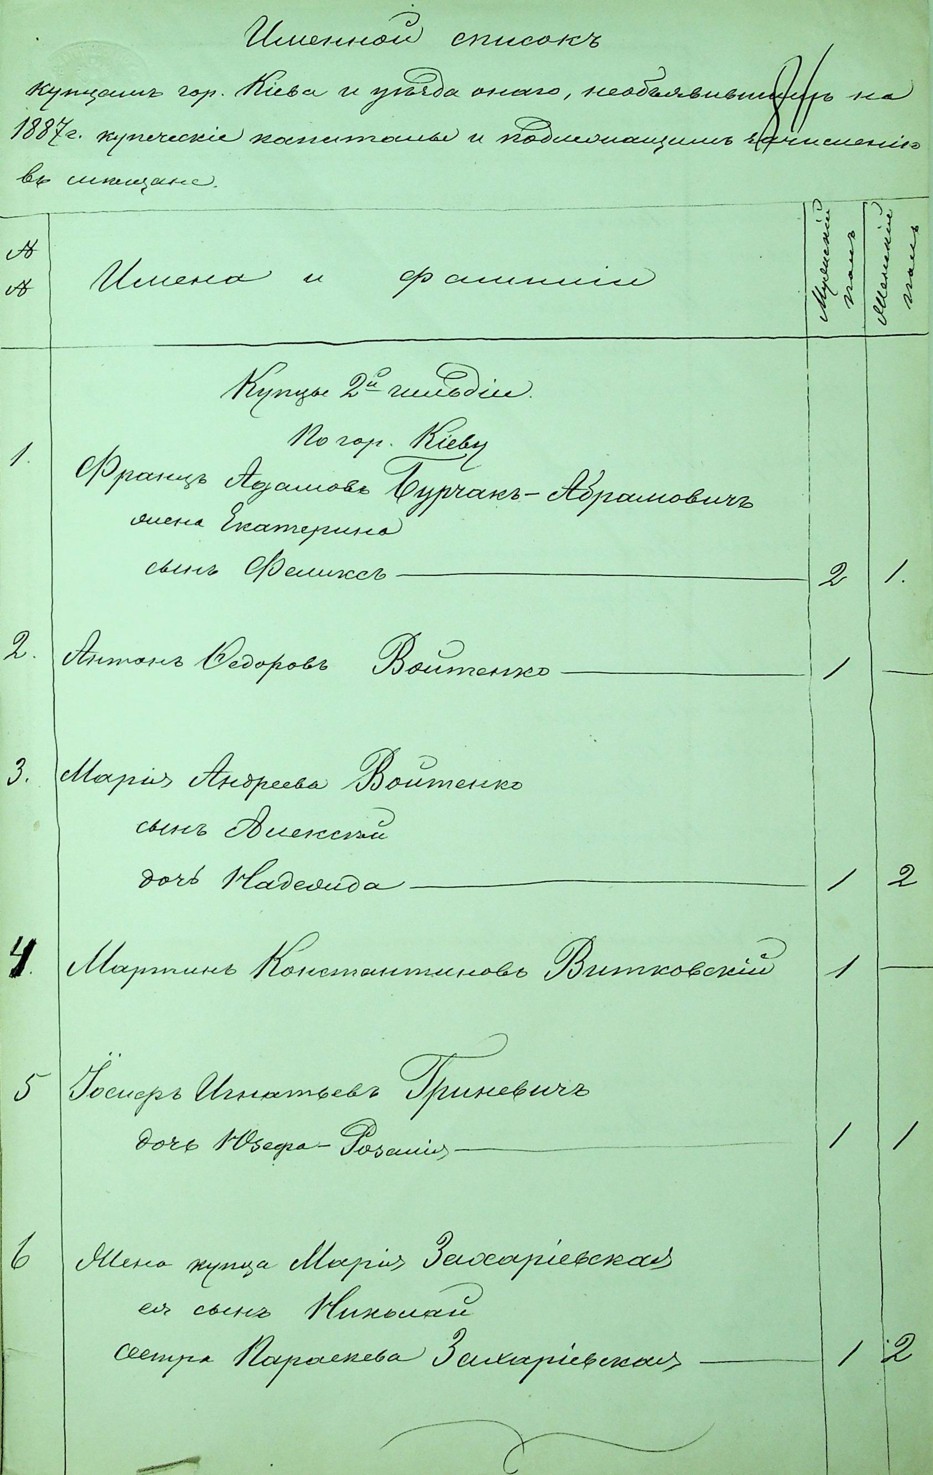 Именной списокъ
купцамъ гор. Кіева и уѣзда онаго, необъявившимъ на
1887 г. купеческіе капиталы и подлежащимъ зачисленію
въ мѣщане.
№
№
Имена и фамиліи
Мужескій полъ
Женскій полъ
Купцы 2й гильдіи.
По гор. Кіеву
1. Францъ Адамовъ Бурчакъ-Абрамовичъ
жена Екатерина
сынъ Феликсъ — 2 1.
2. Антонъ Ѳедоровъ Войтенко — 1 —
3. Марія Андреева Войтенко
сынъ Алексѣй
дочь Надежда — 1 2
4. Мартинъ Константиновъ Витковскій 1 —
5 Іосифъ Игнатьевъ Гриневичъ
дочь Юзефа-Розалія — 1 1
6 Жена купца Марія Захаріевская
ея сынъ Николай
сестра Параскева Захаріевская — 1 2